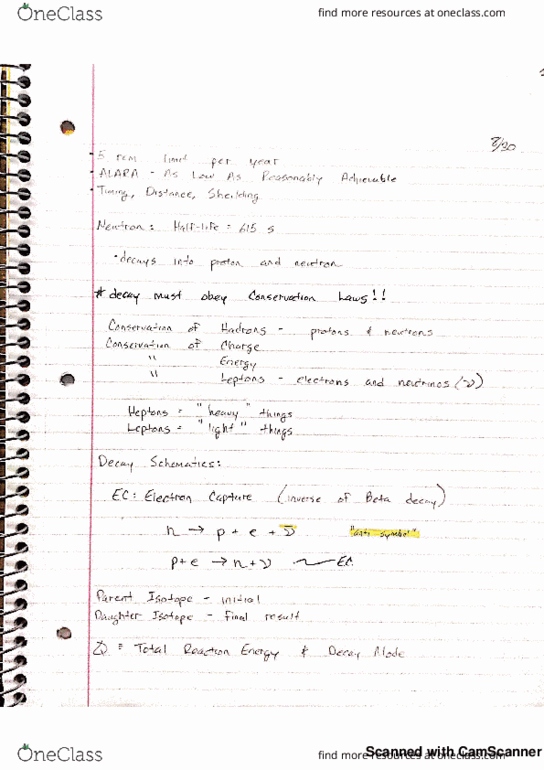 OneClass
find more resources at oneclass.com
8/30
• 5 rem limit per year
• ALARA - As Low As Reasonably Achievable
• Timing, Distance, Sheilding
Neutron: Half-life = 615 s
• decays into proton and neutron
* decay must obey Conservation Laws!!
Conservation of Hadrons - protons & neutrons
Conservation of Charge
" Energy
" Leptons - electrons and neutrinos (ν)
Heptons = "heavy" things
Leptons = "light" things
Decay Schematics:
EC: Electron Capture (inverse of Beta decay)
n → p + e + ν̅ "anti symbol"
p + e → n + ν EC
Parent Isotope - initial
Daughter Isotope - final result
Q = Total Reaction Energy & Decay Mode
OneClass
find more resources at oneclass.com
Scanned with CamScanner